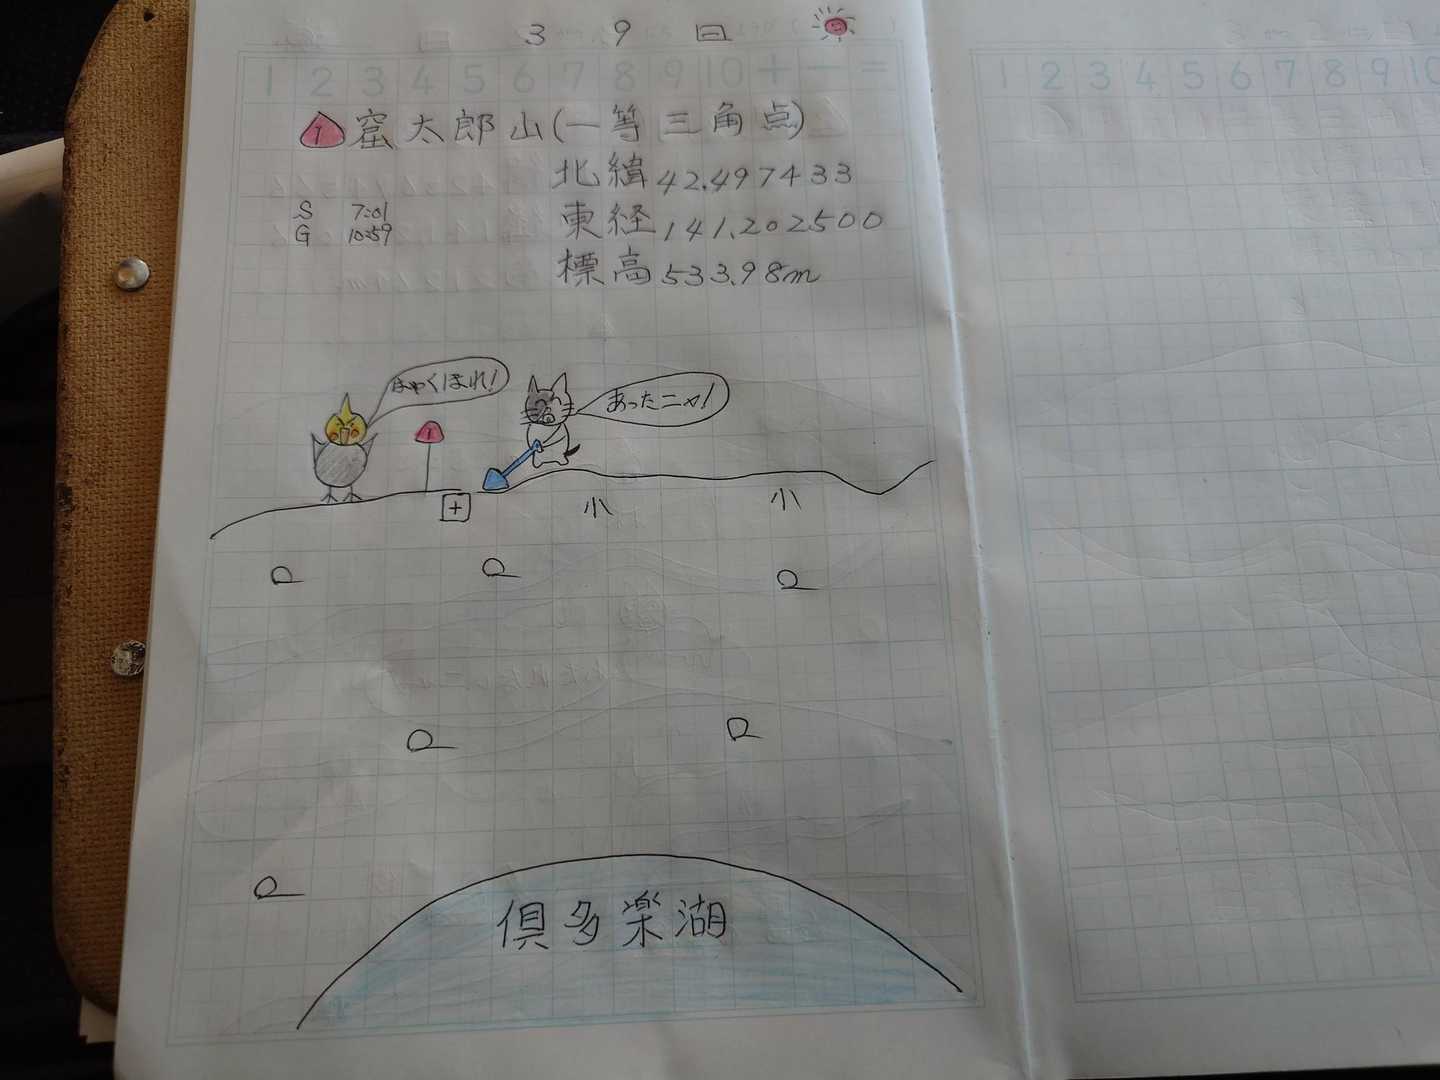 3 9 日
1 2 3 4 5 6 7 8 9 10 + − =
1 窟太郎山(一等三角点)
北緯42.497433
S 7:01
東経141.202500
G 10:59
標高533.98m
はやくほれ!
あったニャ!
1
倶多楽湖
1 2 3 4 5 6 7 8 9 10